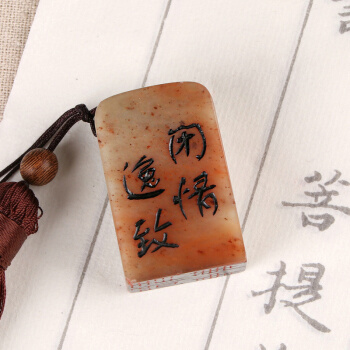 闲情
逸致
菩提